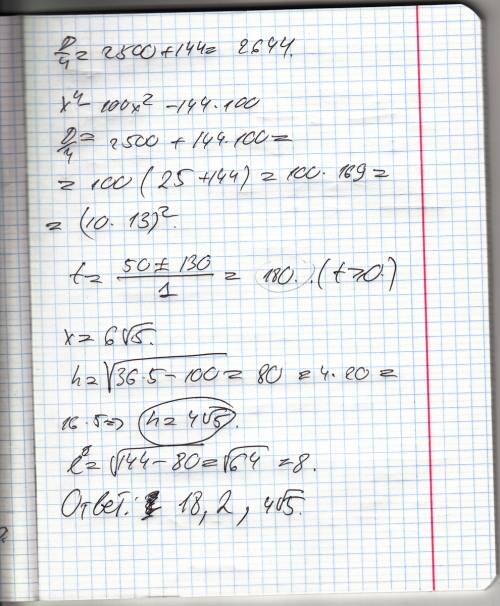 D/4 = 2500 + 144 = 2644.
x⁴ - 100x² - 144·100
D/4 = 2500 + 144·100 =
= 100 (25 + 144) = 100·169 =
= (10·13)².
t = (50 ± 130)/1 = 180. (t>0.)
x = 6√5.
h = √(36·5 - 100) = 80 = 4·20 =
16·5 => h = 4√5.
= √(144 - 80) = √64 = 8.
Ответ: 18, 2, 4√5.